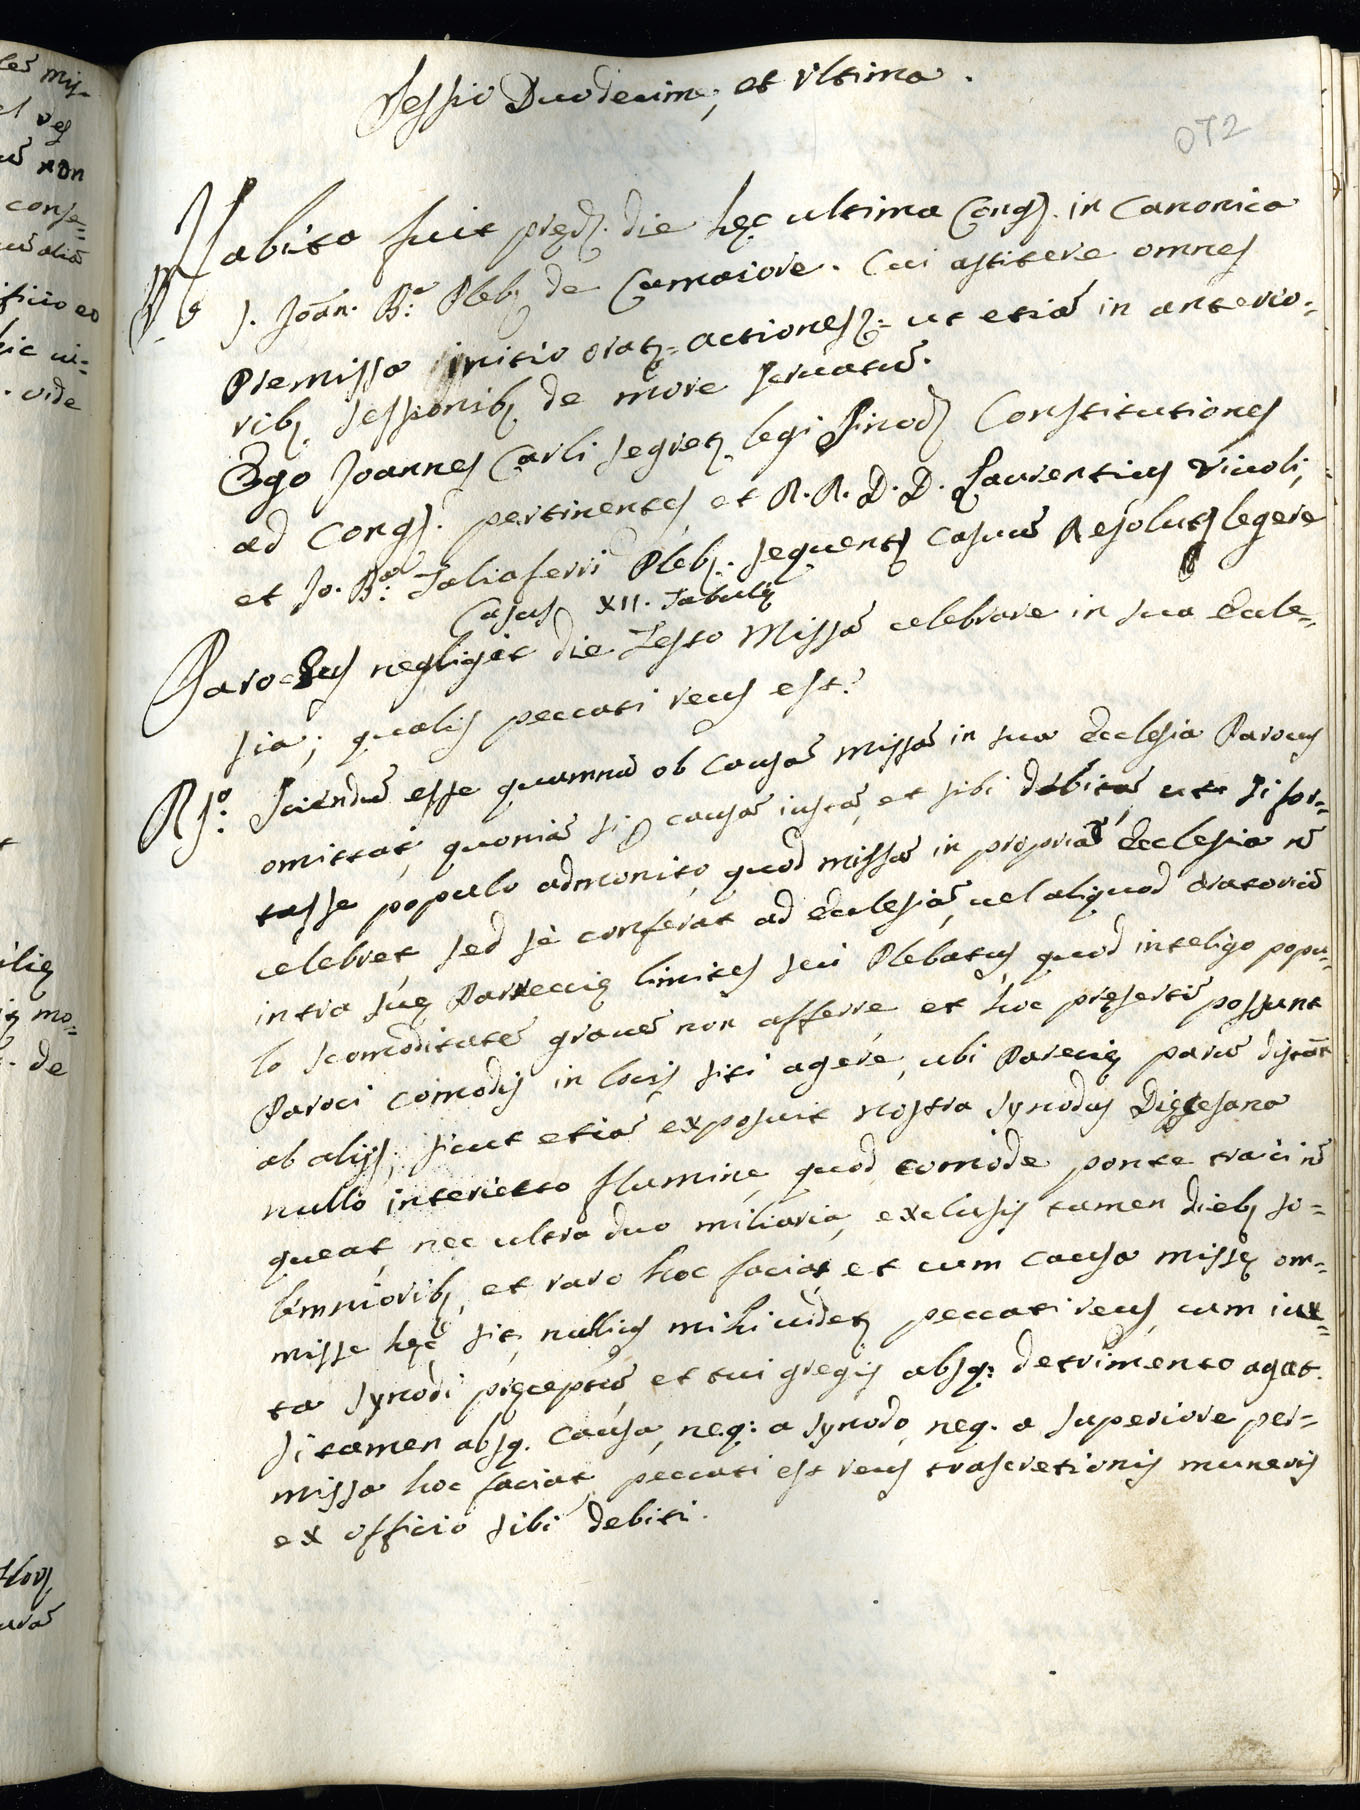 Sessio Duodecima, et ultima.
072
Habita fuit pręd. die hęc ultima Cong. in Canonica
S. Joan. Ba. Pleb. de Camaiore. Cui astitere omnes
Premissa initio orat. actiones ut etiā in anterio=
rib. sessionib. de more servatū.
Ego Joannes Carli segret. legi Sinod. Constitutiones
ad Cong. pertinentes et R. R. D. D. Laurentius
et Jo. Ba. Taliaferri Pleb. sequent. casuū Resolut. legere
Casus XII. Tabulę
Parochus negligit die Festo Missā celebrare in sua Eccle=
sia; qualis peccati reus est?
Rso: Sciendū esse quamnā ob Causā missā in sua Ecclesia Parocus
omittat, quoniā si causā iustā, et sibi debitā, ut si for=
tasse populo admonito, quod missā in propriā Ecclesia nō
celebret sed se conferat ad Ecclesiā, vel aliquod oratoriū
intra suę Parrecię limites sui Plebatus, quod inteligo popu=
lo icomoditatē gravē non afferre et hoc pręsertim possunt
Paroci comodis in locis siti agere, ubi Parecię parū distāt
ab alijs, sicut etiā exposuit nostra Synodus Dięcesana
nullo interiecto flumine, quod comode ponte traici nō
queat, nec ultra duo miliaria, exclusis tamen dieb. so=
lemniorib., et raro hoc faciat, et cum causa missę om=
misse hęc sit, nullius mihi videt. peccati reus, cum iux=
ta Synodi pręceptū et sui gregis absq: detrimento agat.
Si tamen absq. Causa, neq: a Synodo, neq. a superiore per=
missa hoc faciat, peccati est reus trascretionis muneris
ex officio sibi debiti.